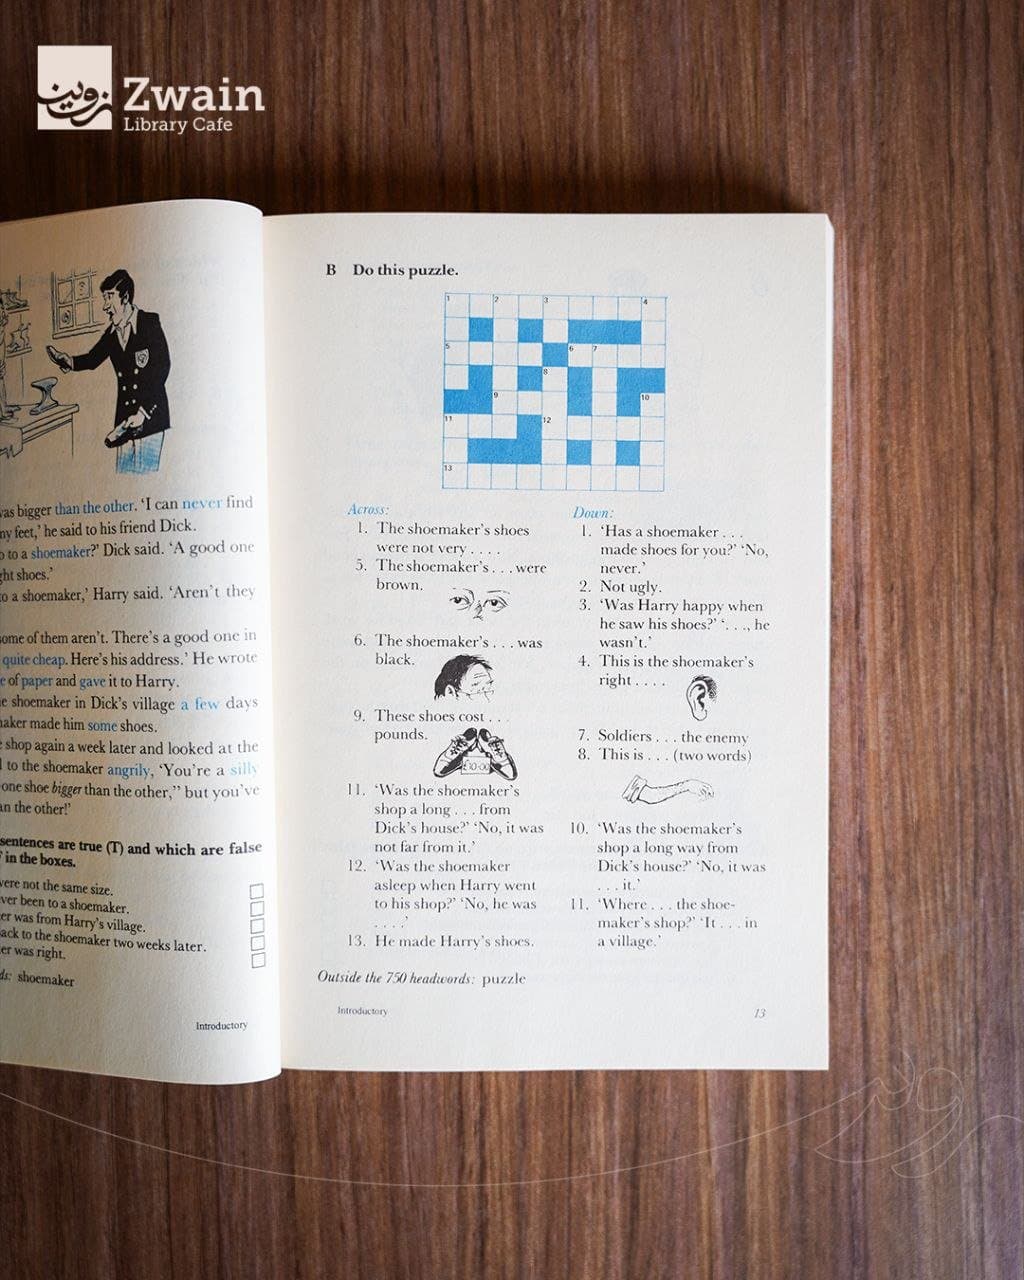 زوين
Zwain
Library Cafe
was bigger than the other. ‘I can never find
my feet,’ he said to his friend Dick.
to a shoemaker?’ Dick said. ‘A good one
right shoes.’
to a shoemaker,’ Harry said. ‘Aren’t they
some of them aren’t. There’s a good one in
quite cheap. Here’s his address.’ He wrote
of paper and gave it to Harry.
shoemaker in Dick’s village a few days
maker made him some shoes.
shop again a week later and looked at the
to the shoemaker angrily, ‘You’re a silly
one shoe bigger than the other,” but you’ve
than the other!’
sentences are true (T) and which are false
in the boxes.
were not the same size.
ever been to a shoemaker.
er was from Harry’s village.
ack to the shoemaker two weeks later.
er was right.
ds: shoemaker
Introductory
B Do this puzzle.
1 2 3 4
5 6 7
8
9 10
11 12
13
Across:
1. The shoemaker’s shoes
were not very . . . .
5. The shoemaker’s . . . were
brown.
6. The shoemaker’s . . . was
black.
9. These shoes cost . . .
pounds.
£10·00
11. ‘Was the shoemaker’s
shop a long . . . from
Dick’s house?’ ‘No, it was
not far from it.’
12. ‘Was the shoemaker
asleep when Harry went
to his shop?’ ‘No, he was
. . . .’
13. He made Harry’s shoes.
Down:
1. ‘Has a shoemaker . . .
made shoes for you?’ ‘No,
never.’
2. Not ugly.
3. ‘Was Harry happy when
he saw his shoes?’ ‘. . ., he
wasn’t.’
4. This is the shoemaker’s
right . . . .
7. Soldiers . . . the enemy
8. This is . . . (two words)
10. ‘Was the shoemaker’s
shop a long way from
Dick’s house?’ ‘No, it was
. . . it.’
11. ‘Where . . . the shoe-
maker’s shop?’ ‘It . . . in
a village.’
Outside the 750 headwords: puzzle
Introductory
13